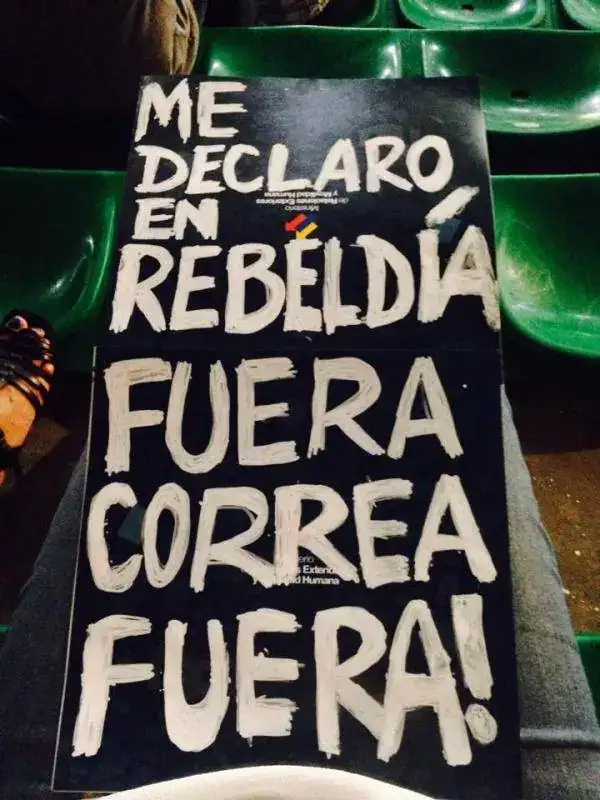 ME
DECLARO
EN
REBELDÍA
Ministerio
de Relaciones Exteriores
y Movilidad Humana
FUERA
CORREA
FUERA!